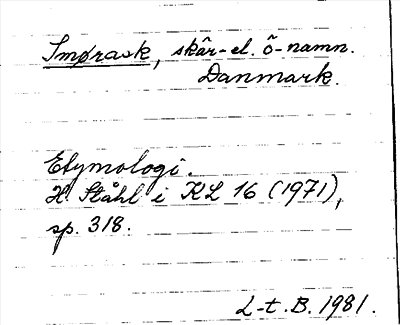 Smørask, skär-el. ö-namn.
Danmark.
Etymologi.
H. Ståhl i KL 16 (1971),
sp. 318.
L-t. B. 1981.